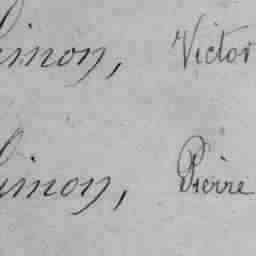 Simon, Victor
Simon, Pierre